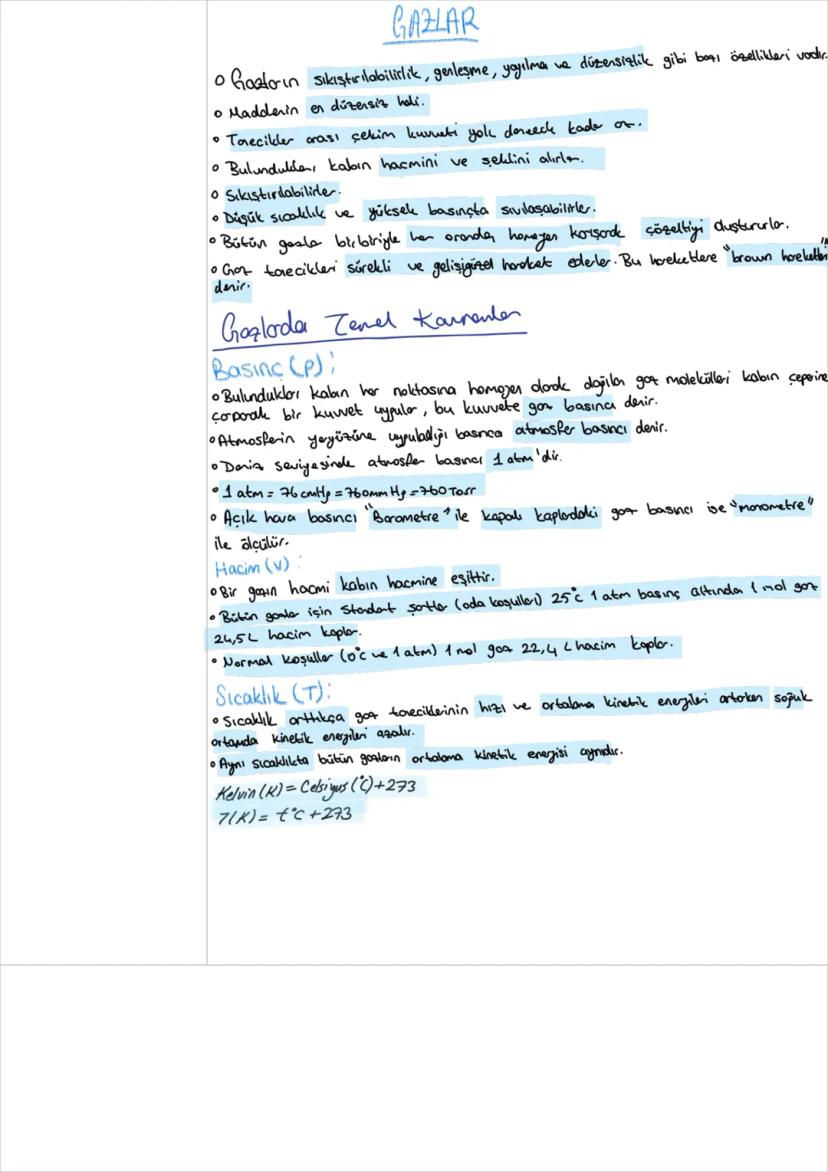 GAZLAR
Gazların sıkıştırılabilirlik, genleşme, yayılma ve düzensizlik gibi bazı özellikleri vardır.
Maddenin en düzensiz hali.
Tanecikler arası çekim kuvveti yok denecek kadar az.
Bulundukları kabın hacmini ve şeklini alırlar.
Sıkıştırılabilirler.
Düşük sıcaklık ve yüksek basınçta sıvılaşabilirler.
Bütün gazlar birbiriyle her oranda homojen karışarak çözeltiyi oluştururlar.
Gaz tanecikleri sürekli ve gelişigüzel hareket ederler. Bu hareketlere "brown hareketleri"
denir.
Gazlarda Temel Kavramlar
Basınç (P):
Bulundukları kabın her noktasına homojen olarak dağılan gaz molekülleri kabın çeperine
çarparak bir kuvvet uygular, bu kuvvete gaz basıncı denir.
Atmosferin yeryüzüne uyguladığı basınca atmosfer basıncı denir.
Deniz seviyesinde atmosfer basıncı 1 atm'dir.
1 atm = 76 cmHg = 760mm Hg = 760 Torr
Açık hava basıncı "Barometre" ile kapalı kaplardaki gaz basıncı ise "manometre"
ile ölçülür.
Hacim (V):
Bir gazın hacmi kabın hacmine eşittir.
Bütün gazlar için Standart şartlar (oda koşulları) 25°C 1 atm basınç altında 1 mol gaz
24,5L hacim kaplar.
Normal koşullar (0°C ve 1 atm) 1 mol gaz 22,4 L hacim kaplar.
Sıcaklık (T):
Sıcaklık arttıkça gaz taneciklerinin hızı ve ortalama kinetik enerjileri artarken soğuk
ortamda kinetik enerjileri azalır.
Aynı sıcaklıkta bütün gazların ortalama kinetik enerjisi aynıdır.
Kelvin (K) = Celsiyus (°C) + 273
T(K) = t°C + 273